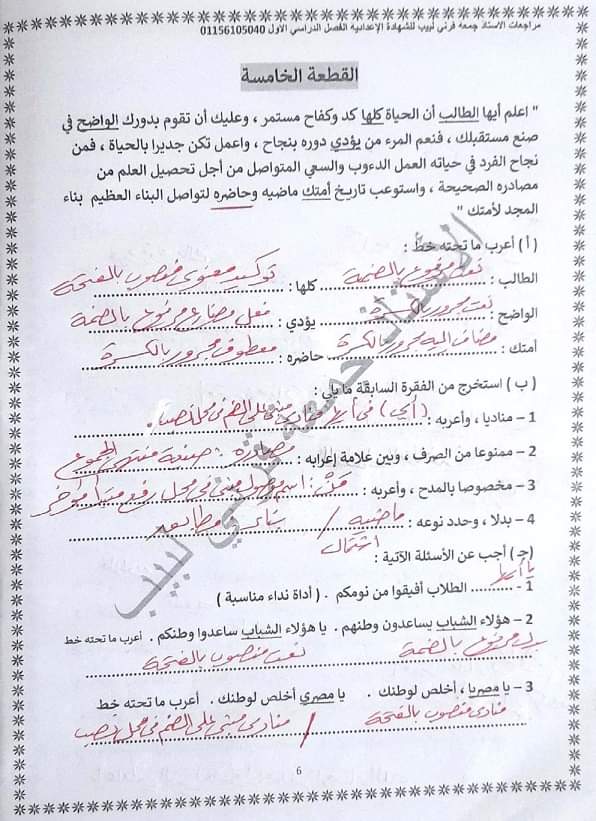 مراجعات الاستاذ جمعه قرني لبيب للشهادة الإعداديه الفصل الدراسي الاول 01156105040
القطعة الخامسة
" اعلم أيها الطالب أن الحياة كلها كد وكفاح مستمر ، وعليك أن تقوم بدورك الواضح في
صنع مستقبلك ، فنعم المرء من يؤدي دوره بنجاح ، واعمل تكن جديرا بالحياة ، فمن
نجاح الفرد في حياته العمل الدءوب والسعي المتواصل من أجل تحصيل العلم من
مصادره الصحيحة ، واستوعب تاريخ أمتك ماضيه وحاضره لتواصل البناء العظيم بناء
المجد لأمتك "
( أ ) أعرب ما تحته خط :
الطالب : نعت مرفوع بالضمة كلها : توكيد معنوى منصوب بالفتحة
الواضح : نعت مجرور بالكسرة يؤدي : فعل مضارع مرفوع بالضمة
أمتك : مضاف إليه مجرور بالكسرة حاضره : معطوف مجرور بالكسرة
( ب ) استخرج من الفقرة السابقة ما يلي :
1 – مناديا ، وأعربه : (أي) في أيها منادى مبنى على الضم فى محل نصب
2 – ممنوعا من الصرف ، وبين علامة إعرابه : مصادره : صيغة منتهى الجموع
3 – مخصوصا بالمدح ، وأعربه : مَنْ : اسم موصول مبنى فى محل رفع مبتدأ مؤخر
4 – بدلا ، وحدد نوعه : ماضيه / بناء مطابق
اشتمال
( ج ) أجب عن الأسئلة الآتية :
يا أيها
1 - .......... الطلاب أفيقوا من نومكم . ( أداة نداء مناسبة )
2 – هؤلاء الشباب يساعدون وطنهم . يا هؤلاء الشباب ساعدوا وطنكم . أعرب ما تحته خط
بدل مرفوع بالضمة نعت منصوب بالفتحة
3 – يا مصريا ، أخلص لوطنك . يا مصري أخلص لوطنك . أعرب ما تحته خط
منادى منصوب بالفتحة / منادى مبنى على الضم فى محل نصب
6
الأستاذ جمعه قرني لبيب